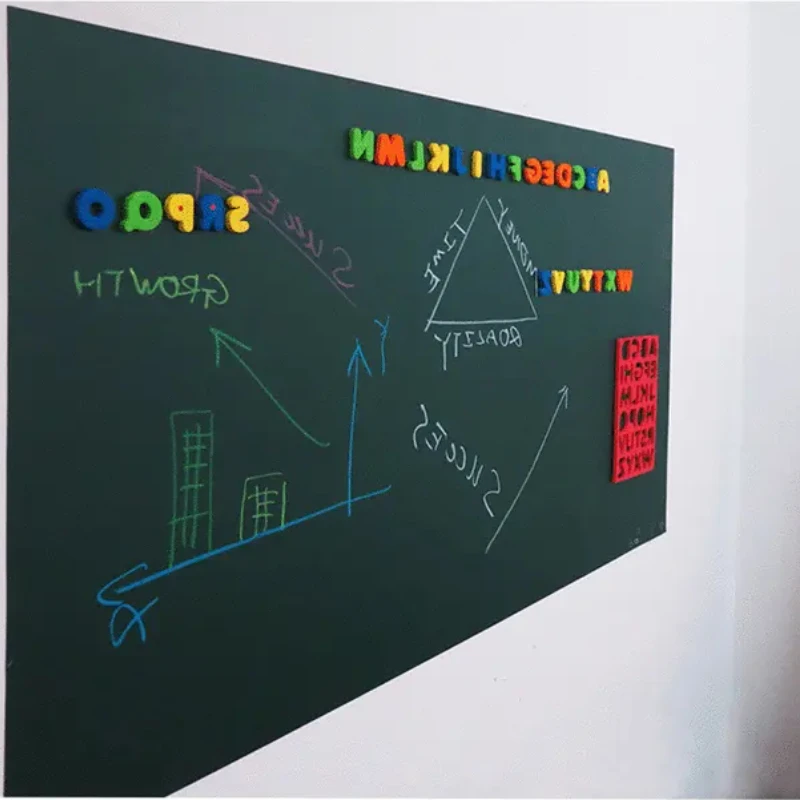 ABCDEGFHIJKLMN
SRPQO
SUCCES
MONEY
TIME
QUALITY
WXTYUVZ
GROWTH
Y
SUCCES
X
ABCD
EFGHI
JKLM
NOPQ
RSTUV
WXYZ